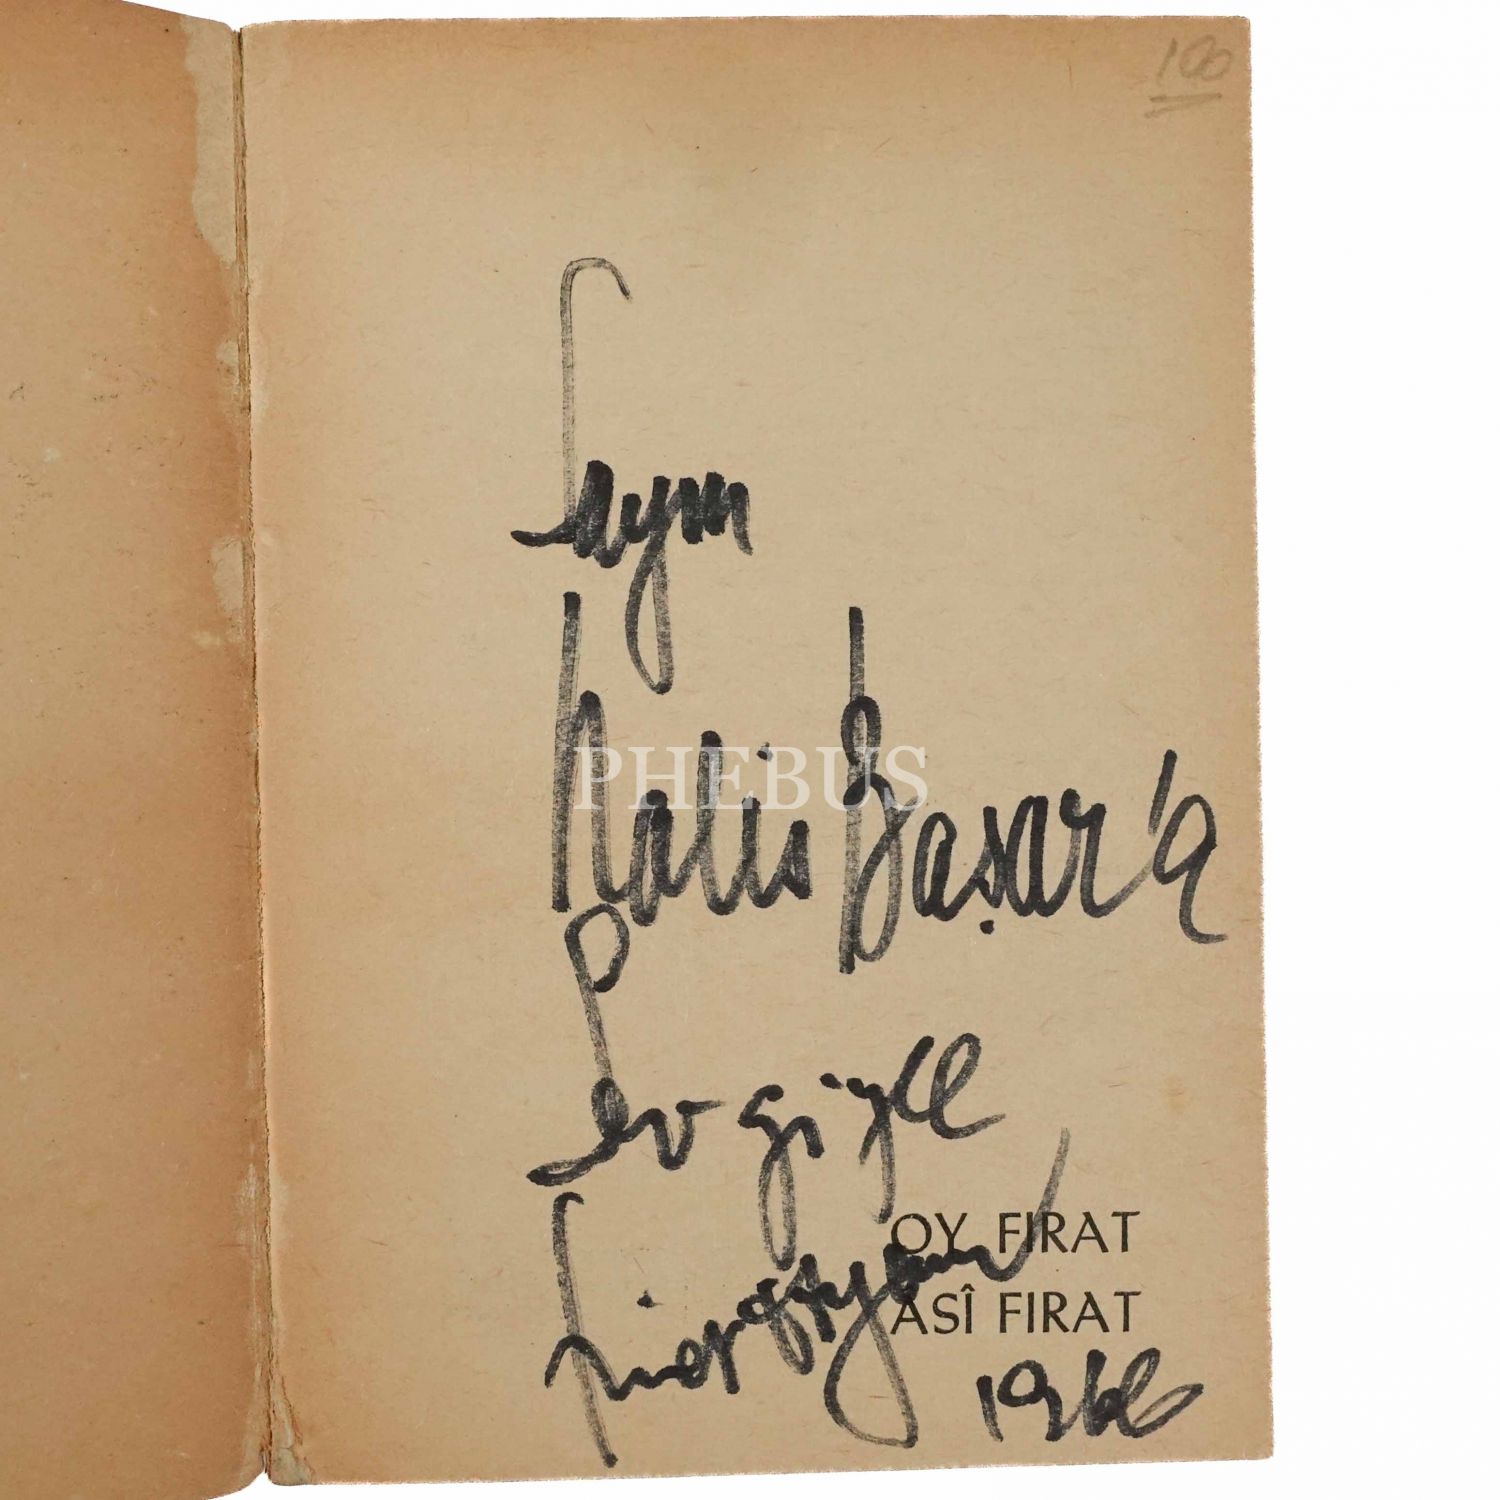 100
Sayın
Halis Başar'a
Sevgiyle
OY FIRAT
ASÎ FIRAT
1966
PHEBUS